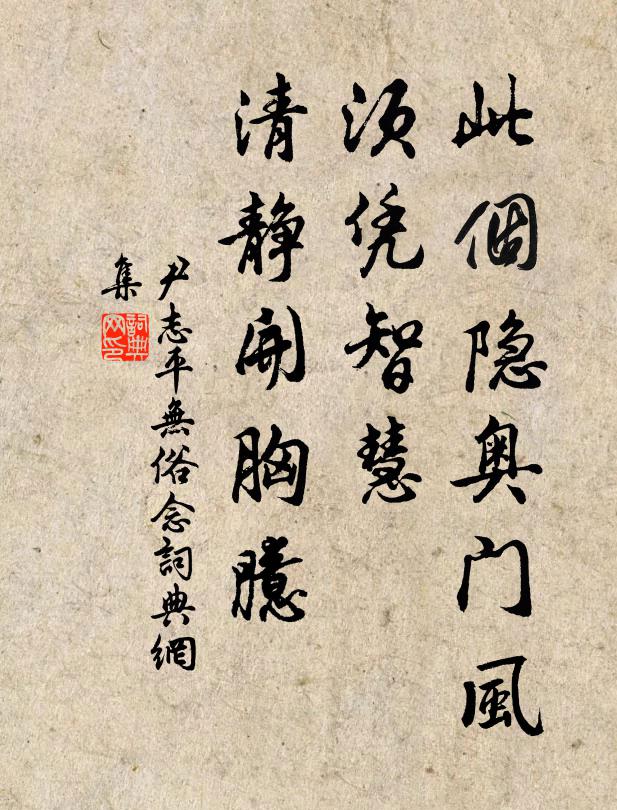 此個隐奥门風
须凭智慧
清静開胸臆
尹志平無俗念詞典網
集
詞典
网印